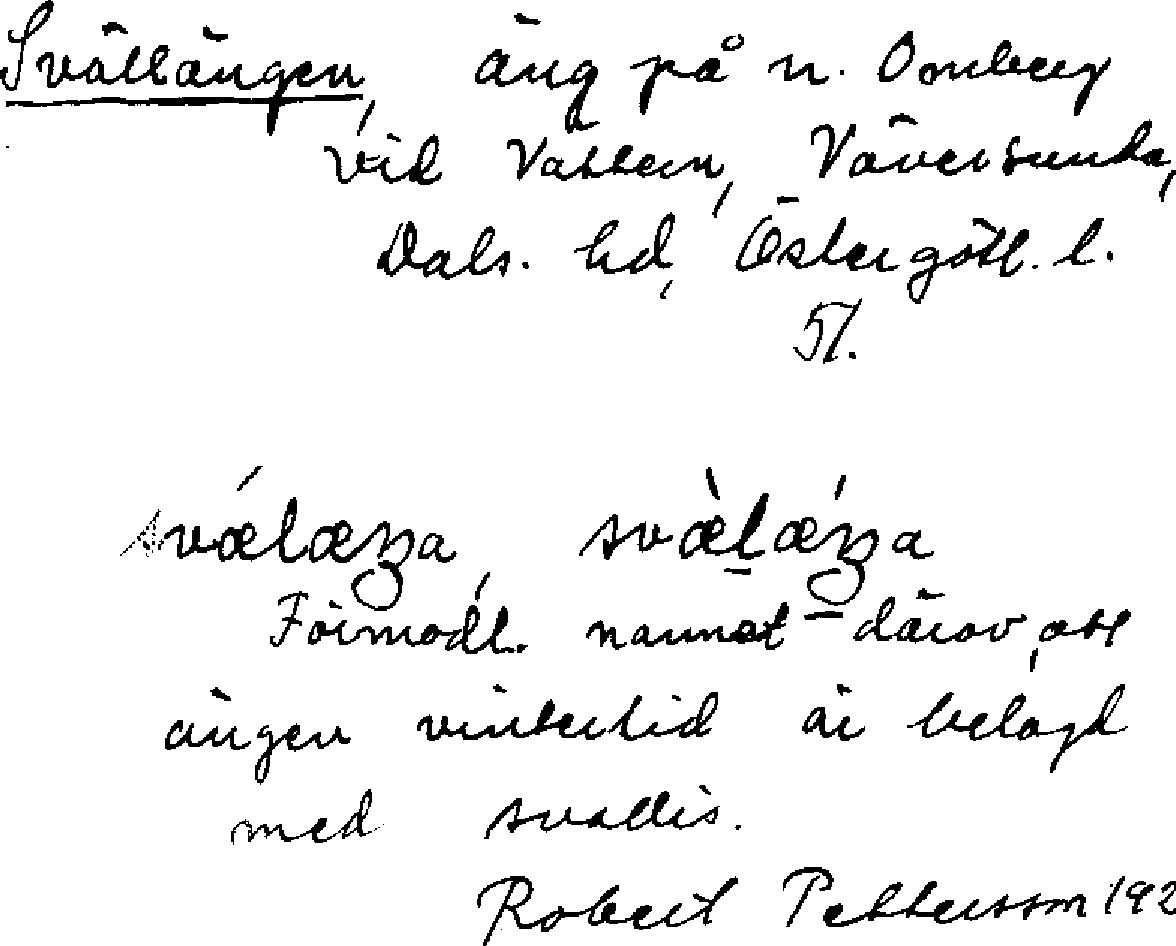 Svällängen, äng på n. Omberg
vid Vättern, Väversunda,
Dals. hd, Östergötl. l.
51.
svǽlæŋa, svæ̀lǽŋa
Förmodl. namnet därav, att
ängen vintertid är belagd
med svallis.
Robert Pettersson 192